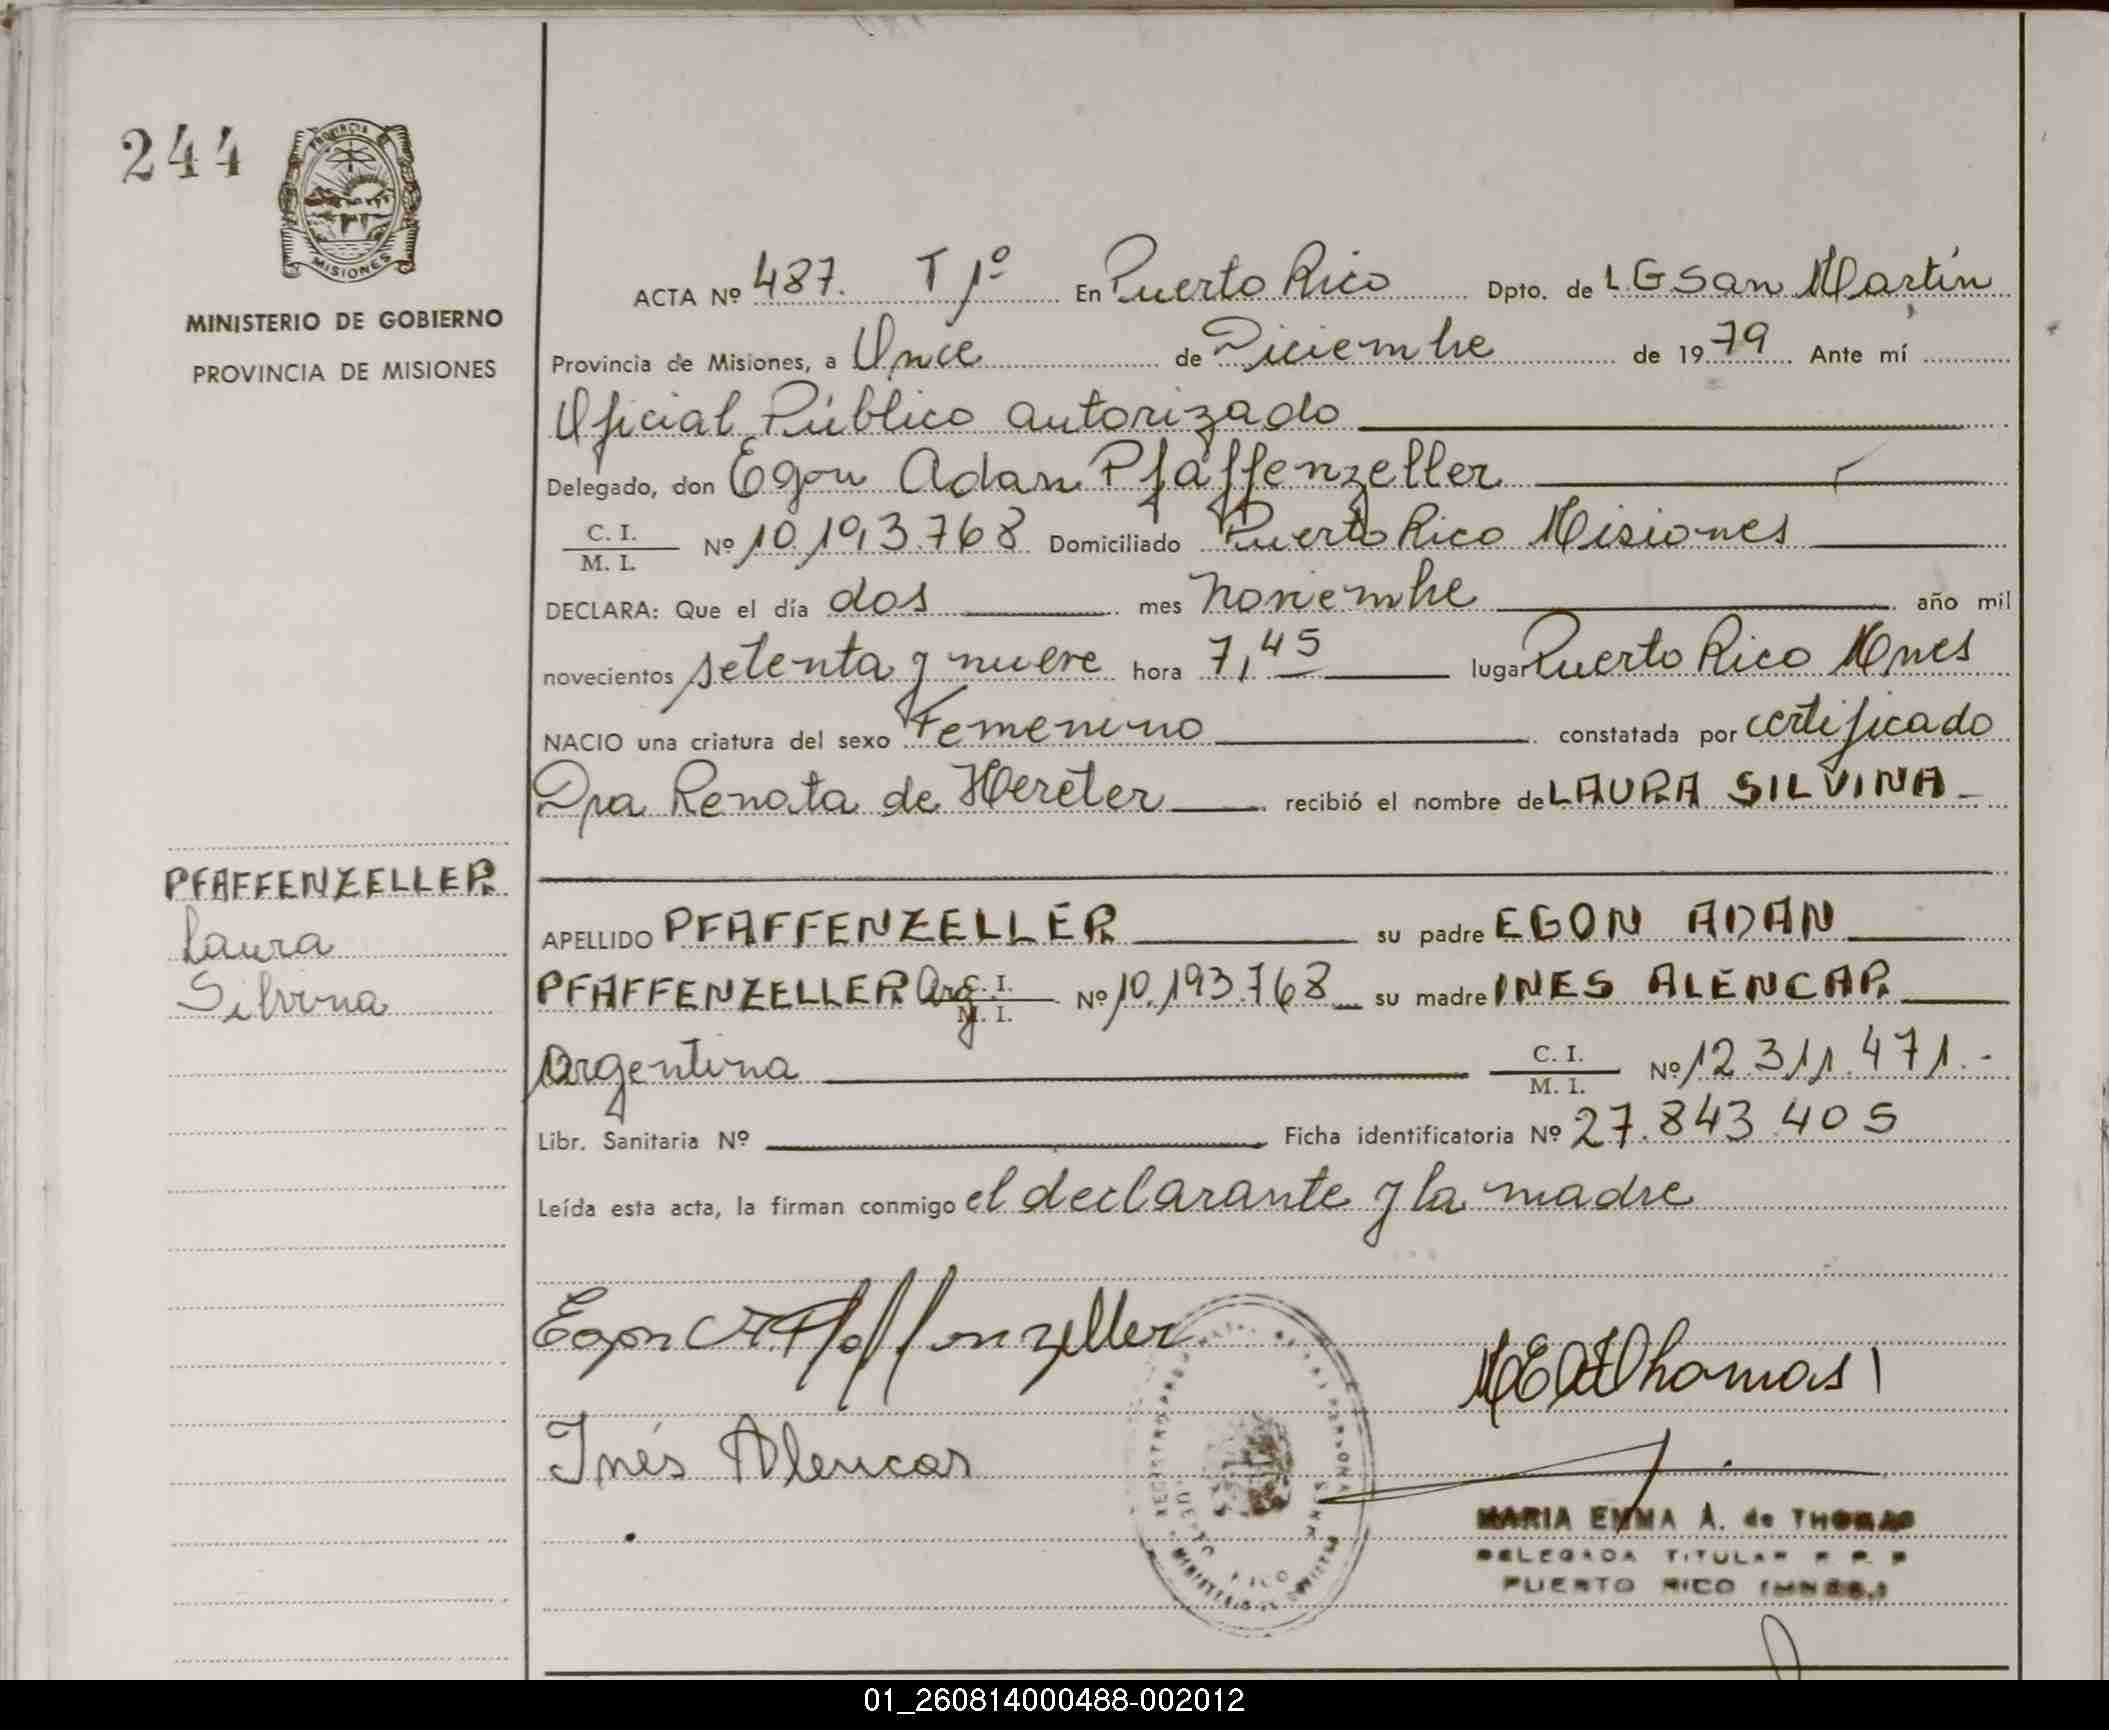 244
PROVINCIA
MISIONES
MINISTERIO DE GOBIERNO
PROVINCIA DE MISIONES
ACTA Nº 487. T 1º En Puerto Rico Dpto. de L G San Martín
Provincia de Misiones, a Once de Diciembre de 1979 Ante mí
Oficial Público autorizado
Delegado, don Egon Adan Pfaffenzeller
C. I.
M. I. Nº 10.193.768 Domiciliado Puerto Rico Misiones
DECLARA: Que el día dos mes noviembre año mil
novecientos setenta y nueve hora 7,45 lugar Puerto Rico Mnes
NACIO una criatura del sexo Femenino constatada por certificado
Dra Renata de Hereter recibió el nombre de LAURA SILVINA
PFAFFENZELLER
Laura
Silvina
APELLIDO PFAFFENZELLER su padre EGON ADAN
PFAFFENZELLER Arg C. I. M. I. Nº 10.193.768 su madre INES ALENCAR
Argentina C. I. M. I. Nº 12.311.471.-
Libr. Sanitaria Nº Ficha identificatoria Nº 27.843.405
Leída esta acta, la firman conmigo el declarante y la madre
Egon A. Pfaffenzeller
Thomas
Inés Alencar
MARIA EMMA A. de THOMAS
DELEGADA TITULAR R. P. P
PUERTO RICO (MNES.)
01_260814000488-002012